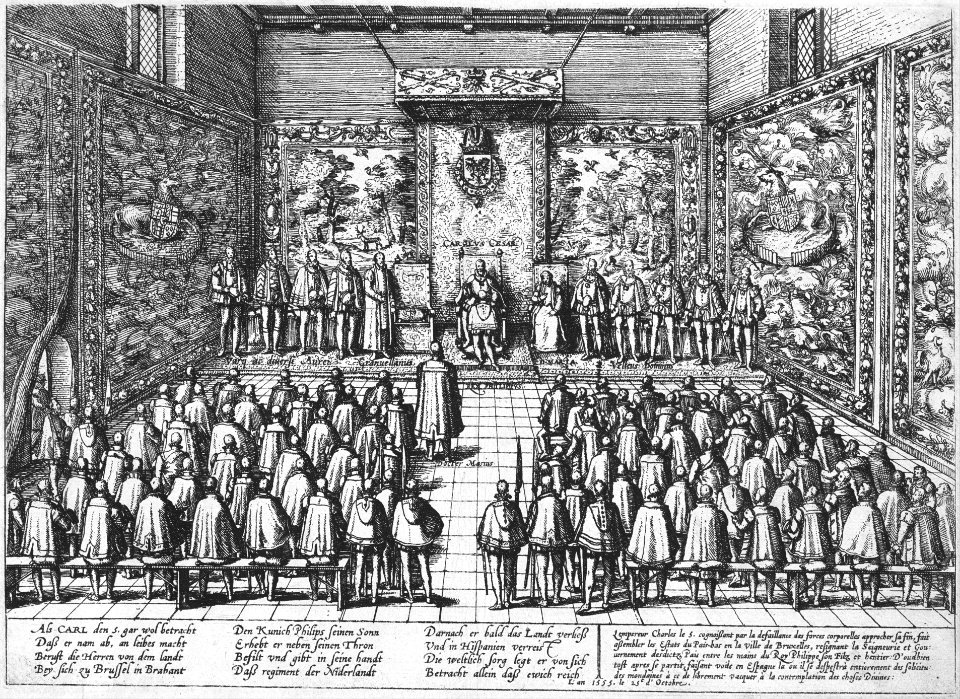 CAROLVS CESAR
Granvellanus
Doctor Masius
Als CARL den 5. gar wol betracht
Daß er nam ab, an leibes macht
Berufft die Herren von dem landt
Bey sich zu Brussel in Brabant
Den Kunich Philips seinen Sonn
Erhebt er neben seinen Thron
Befilt vnd gibt in seine handt
Daß regiment der Niderlandt
Darnach er bald das Landt verließ
Vnd in Hispanien verreist
Die weltlich sorg legt er von sich
Betracht allein daß ewich reich
L'empereur Charles le 5. cognoissant par la defaillance des forces corporelles approcher sa fin, fait
assembler les Estats du Pais-bas en la ville de Bruxelles, resignant la Saigneurie et Gou-
uernement desdictz Pais entre les mains du Roy Philippe son Filz et heritier D'ou bien
tost apres se partit, faisant voile en Espagne la ou il se despestra entierement des solicitu-
des mondaines à ce de librement vacquer à la contemplation des choses Diuines.
L'an 1555. le 25e d'Octobre.